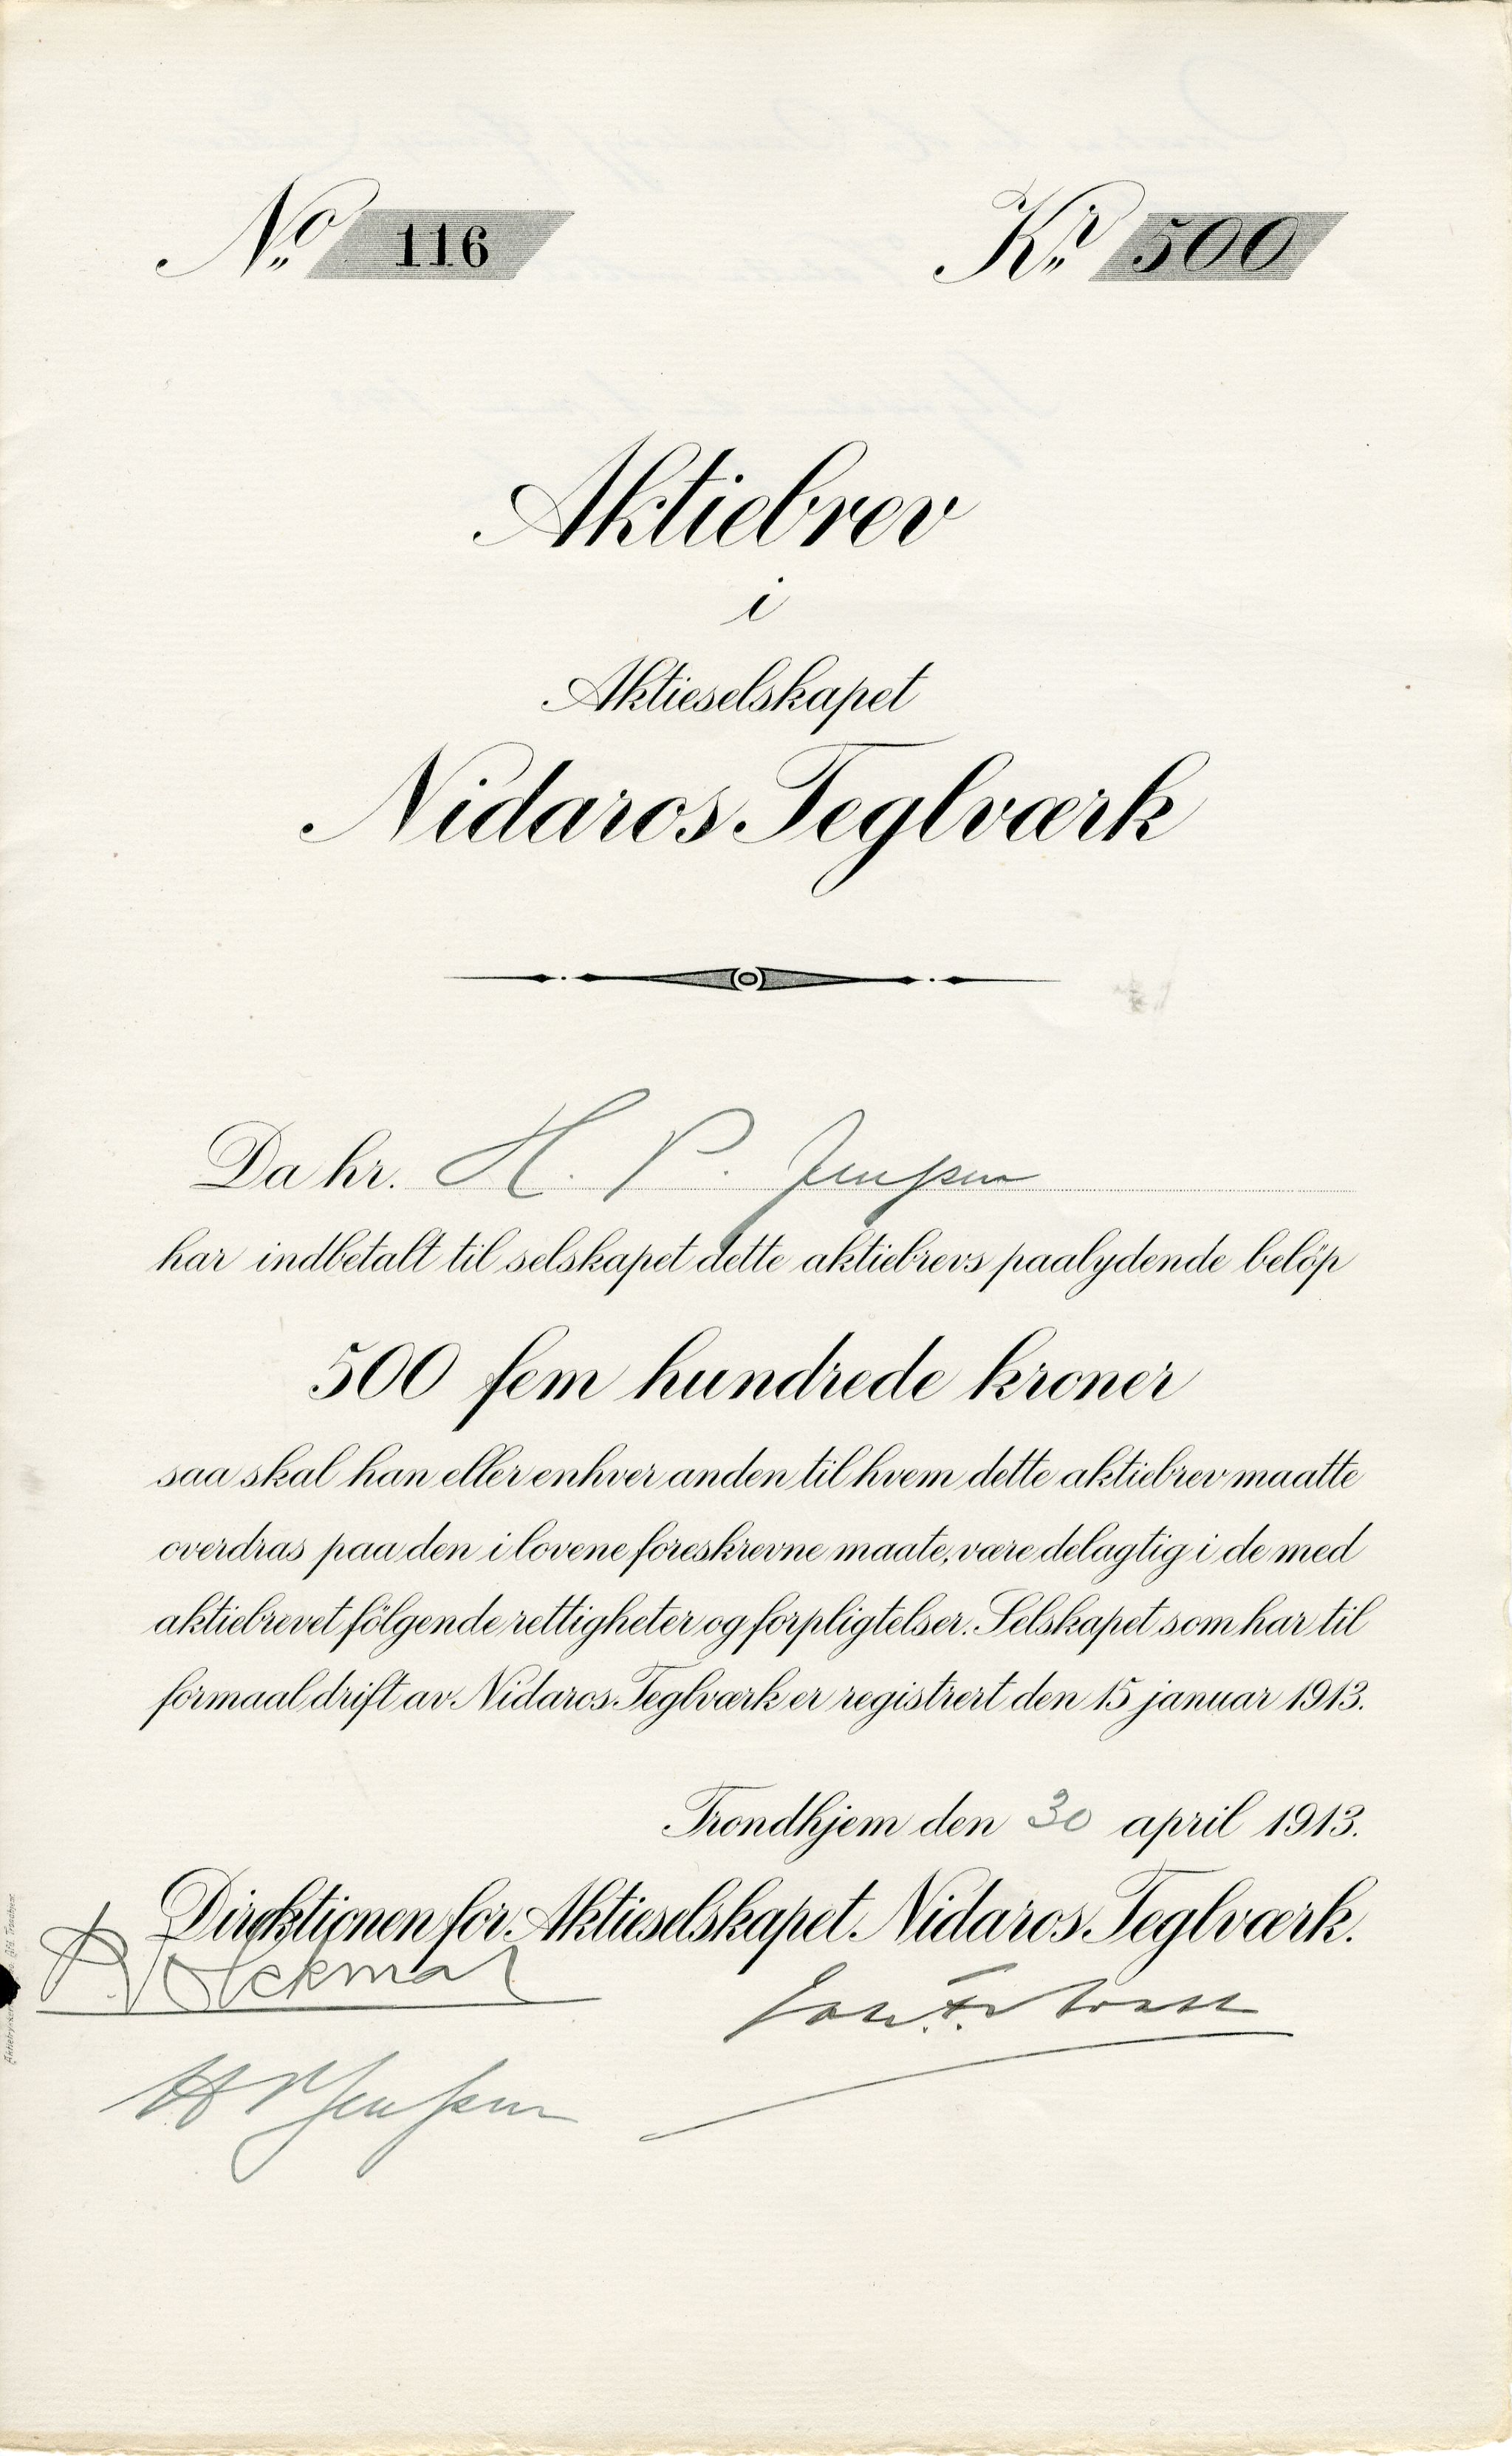 No. 116 Kr. 500
Aktiebrev
i
Aktieselskapet
Nidaros Teglværk
Da hr. H. P. Jenssen
har indbetalt til selskapet dette aktiebrevs paalydende belöp
500 fem hundrede kroner
saa skal han eller enhver anden til hvem dette aktiebrev maatte
overdras paa den i lovene foreskrevne maate, være delagtig i de med
aktiebrevet fölgende rettigheter og forpligtelser. Selskapet som har til
formaal drift av Nidaros Teglværk er registrert den 15 januar 1913.
Trondhjem den 30 april 1913.
Direktionen for Aktieselskapet Nidaros Teglværk.
H P Jenssen